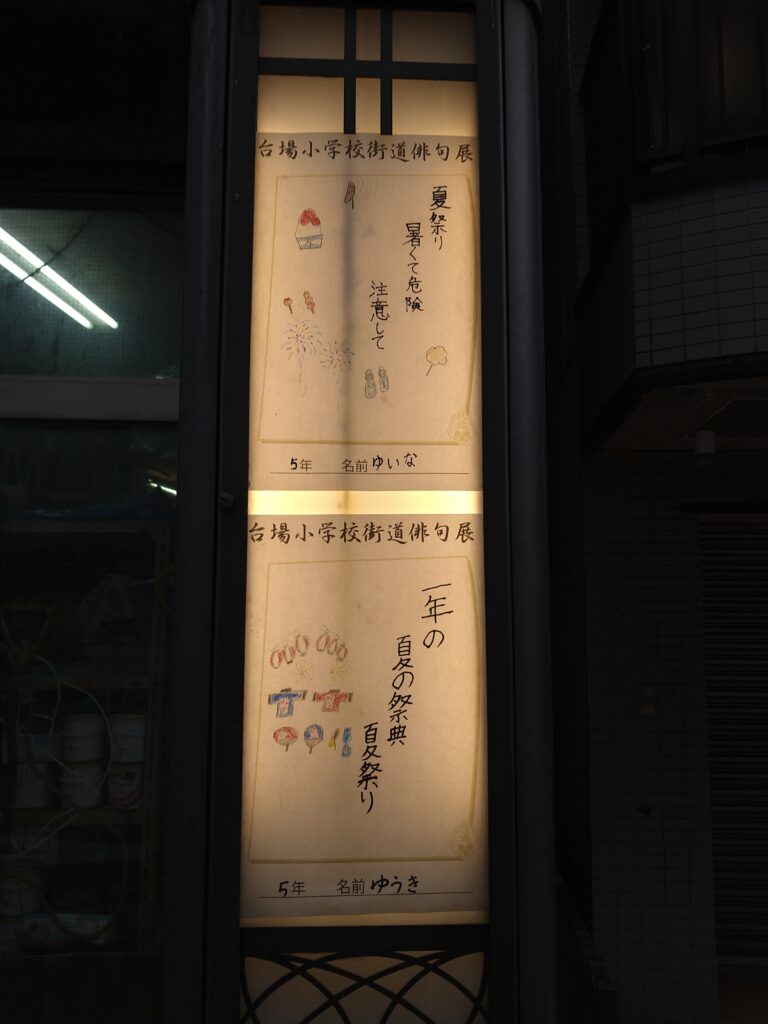 台場小学校街道俳句展
夏祭り
暑くて危険
注意して
5年 名前 ゆいな
台場小学校街道俳句展
一年の
夏の祭典
夏祭り
5年 名前 ゆうき